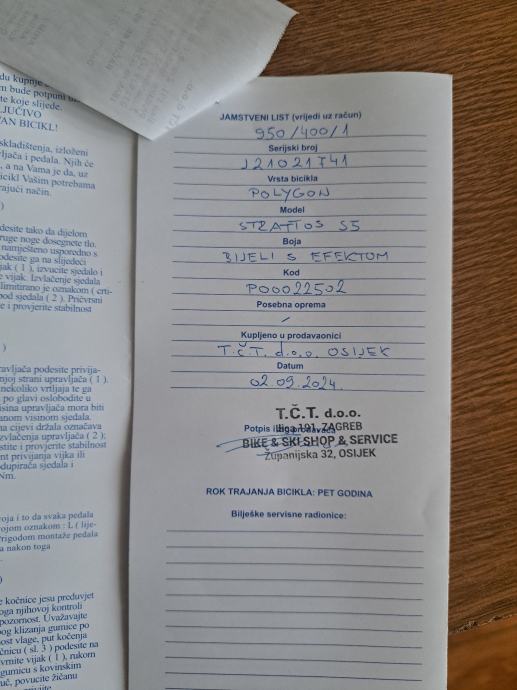 du kupnje
m bude potpuni
te koje slijede.
LJUČIVO
AN BICIKL!
skladištenja, izloženi
ljača i pedala. Njih će
, a na Vama je da, uz
icikl Vašim potrebama
rajući način.
)
desite tako da dijelom
ruge noge dosegnete tlo.
namješteno usporedno s
odesite ga na slijedeći
jak ( 1 ), izvucite sjedalo i
e vijak. Izvlačenje sjedala
limitirano je oznakom ( crti-
pod sjedala ( 2 ). Pričvrsni
e i provjerite stabilnost
)
ravljača podesite privija-
njoj strani upravljača ( 1 ).
nekoliko vrtljaja te ga
po glavi oslobodite u
isina upravljača mora biti
anom visinom sjedala.
na cijevi držala označava
zvlačenja upravljača ( 2 );
stite i provjerite stabilnost
nt privijanja vijka ili
dupirača sjedala i
Nm.
voja i to da svaka pedala
vojom oznakom : L ( lije-
Prigodom montaže pedala
a nakon toga
)
e kočnice jesu preduvjet
oga njihovoj kontroli
pozornost. Uvažavajte
og klizanja gumice po
ost vlage, put kočenja
čnicu ( sl. 3 ) podesite na
vrnite vijak ( 1 ), rukom
gumicu s kovinskim
uč, povucite žičanu
JAMSTVENI LIST (vrijedi uz račun)
950/400/1
Serijski broj
J21021741
Vrsta bicikla
POLYGON
Model
STRATTOS S5
Boja
BIJELI S EFEKTOM
Kod
P00022502
Posebna oprema
/
Kupljeno u prodavaonici
T.Č.T. d.o.o. OSIJEK
Datum
02.09.2024.
T.Č.T. d.o.o.
Potpis i žig prodavača
191, ZAGREB
BIKE & SKI SHOP & SERVICE
Županijska 32, OSIJEK
ROK TRAJANJA BICIKLA: PET GODINA
Bilješke servisne radionice: